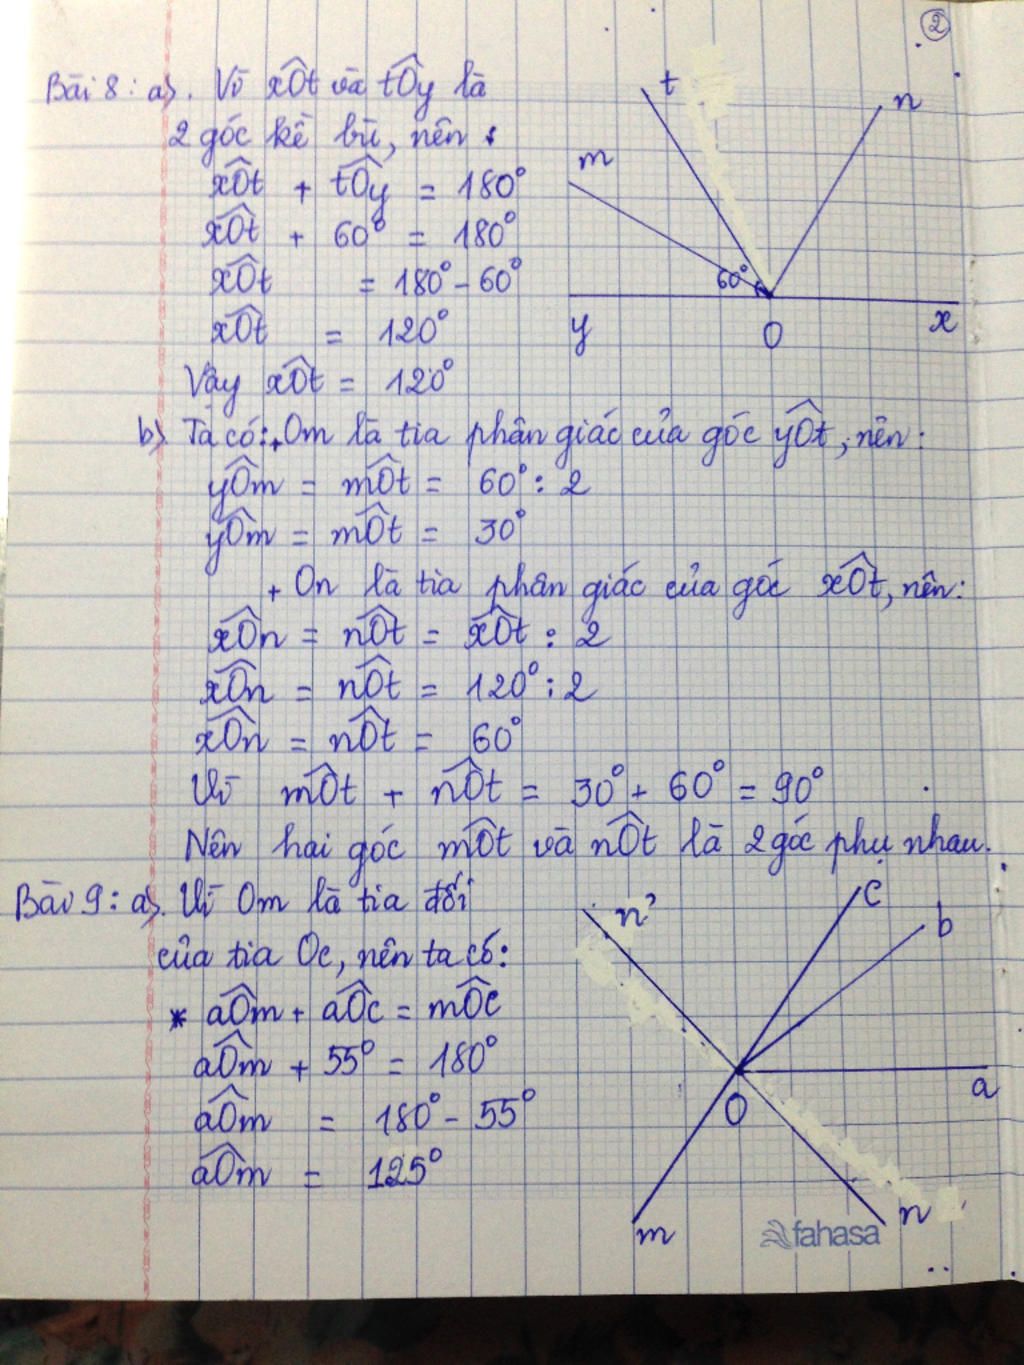 2
Bài 8: a). Vì xÔt và tÔy là
2 góc kề bù, nên:
xÔt + tÔy = 180°
xÔt + 60° = 180°
xÔt = 180° - 60°
xÔt = 120°
Vậy xÔt = 120°
t
n
m
60°
y
O
x
b) Ta có: + Om là tia phân giác của góc yÔt, nên:
yÔm = mÔt = 60° : 2
yÔm = mÔt = 30°
+ On là tia phân giác của góc xÔt, nên:
xÔn = nÔt = xÔt : 2
xÔn = nÔt = 120° : 2
xÔn = nÔt = 60°
Vì mÔt + nÔt = 30° + 60° = 90°
Nên hai góc mÔt và nÔt là 2 góc phụ nhau.
Bài 9: a). Vì Om là tia đối
của tia Oc, nên ta có:
* aÔm + aÔc = mÔc
aÔm + 55° = 180°
aÔm = 180° - 55°
aÔm = 125°
n'
c
b
O
a
m
n
fahasa